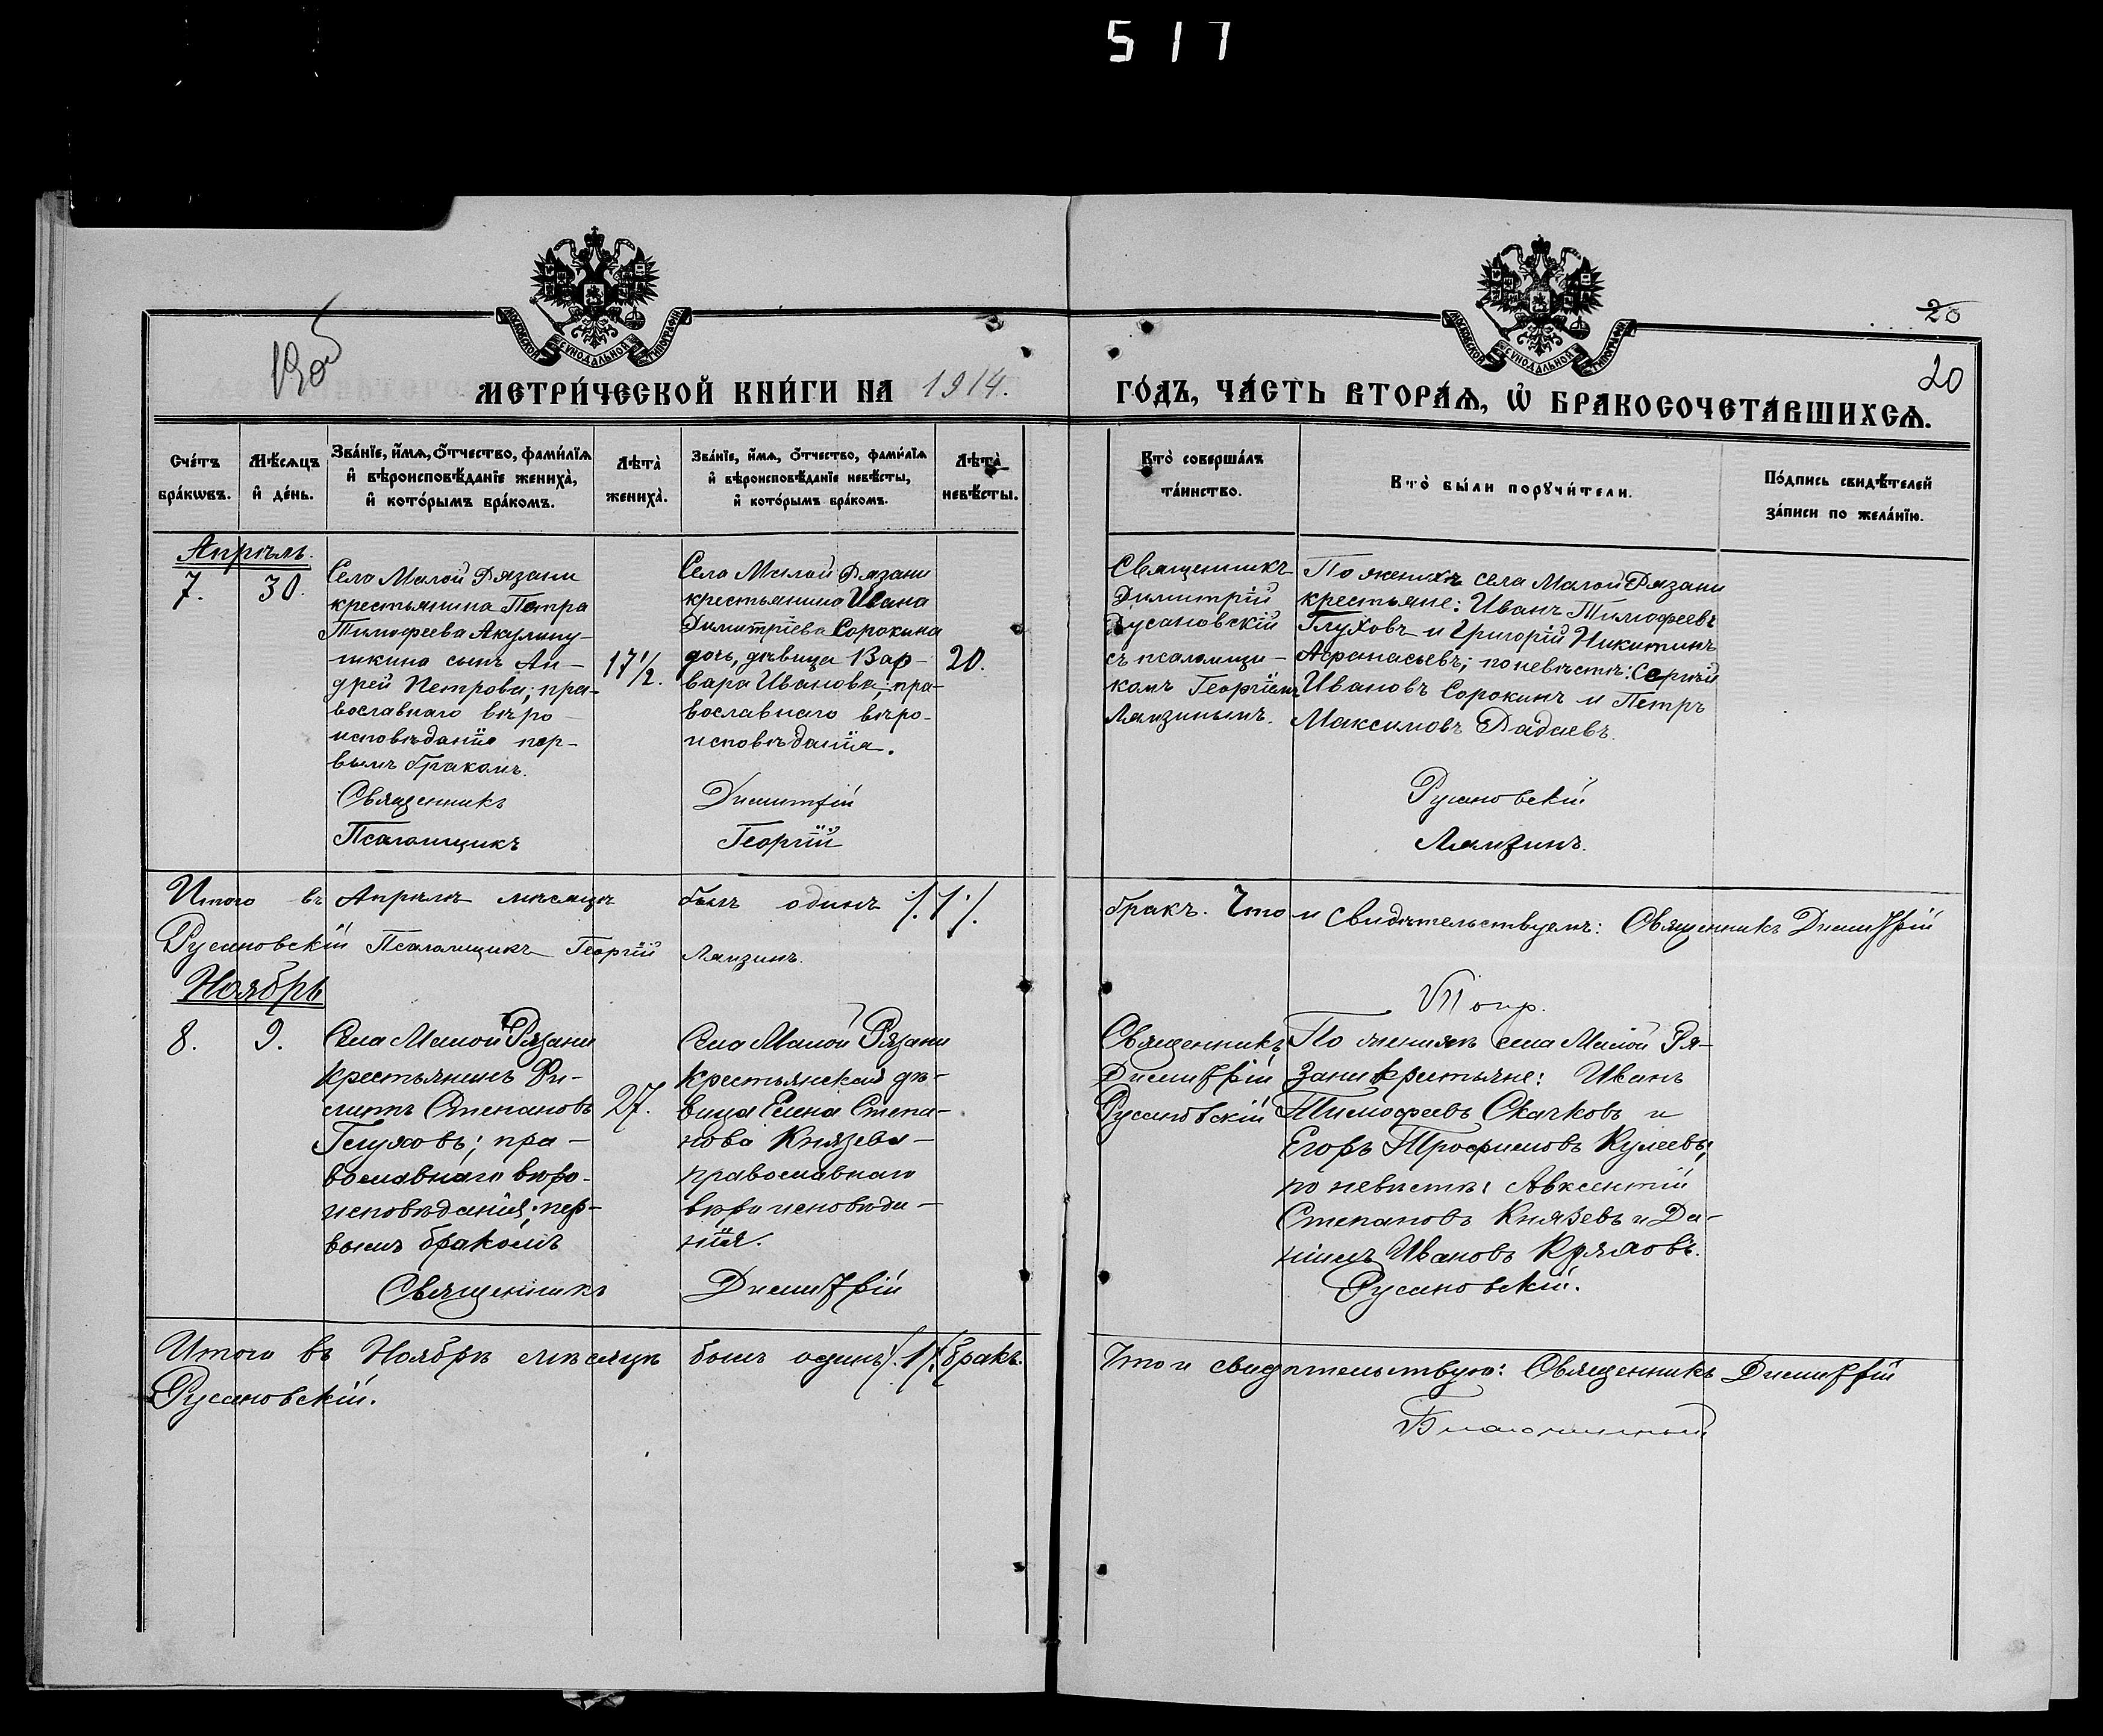 517
МОСКОВСКОЙ СУНОДАЛЬНОЙ ТИПОГРАФІИ
МОСКОВСКОЙ СУНОДАЛЬНОЙ ТИПОГРАФІИ
20
20
МЕТРИ́ЧЕСКОЙ КНИ́ГИ НА 1914.
ГО́ДЪ, ЧА́СТЬ ВТОРА́Ѧ, Ѽ БРАКОСОЧЕТА́ВШИХСѦ.
Сче́тъ бра́кѡвъ.
Мѣ́сѧцъ и҆ де́нь.
Зва́нїе, и҆́мѧ, ѻ҆́тчество, фами́лїѧ и҆ вѣроисповѣ́данїе жениха̀, и҆ кото́рымъ бра́комъ.
Лѣта̀ жениха̀.
Зва́нїе, и҆́мѧ, ѻ҆́тчество, фами́лїѧ и҆ вѣроисповѣ́данїе невѣ́сты, и҆ кото́рымъ бра́комъ.
Лѣта̀ невѣ́сты.
Кто̀ соверша́лъ та́инство.
Кто̀ бы́ли порꙋчи́тели.
По́дпись свидѣ́телей за́писи по жела́нїю.
Апрѣль.
7.
30.
Села Малой Рязани
крестьянина Петра
Тимофеева Акулину-
шкина сынъ Ан-
дрей Петровъ; пра-
вославнаго вѣро-
исповѣданія пер-
вымъ бракомъ.
17½.
Села Малой Рязани
крестьянина Ивана
Димитріева Сорокина
дочь, дѣвица Вар-
вара Иванова; пра-
вославнаго вѣро-
исповѣданія.
20.
Священникъ
Димитрій
Русановскій
съ псаломщи-
комъ Георгіемъ
Лямзинымъ.
По женихѣ села Малой Рязани
крестьяне: Иванъ Тимофеевъ
Глуховъ и Григорій Никитинъ
Афанасьевъ; по невѣстѣ: Сергѣй
Ивановъ Сорокинъ и Петръ
Максимовъ Радаевъ.
Священникъ Димитрій Русановскій
Псаломщикъ Георгій Лямзинъ.
Итого въ Апрѣлѣ мѣсяцѣ былъ одинъ /.1/. бракъ. Что и свидѣтельствуемъ: Священникъ Димитрій
Русановскій Псаломщикъ Георгій Лямзинъ.
Ноябрь
8.
9.
Села Малой Рязани
крестьянинъ Фи-
липъ Степановъ
Глуховъ; пра-
вославнаго вѣро-
исповѣданія; пер-
вымъ бракомъ
27.
Села Малой Рязани
крестьянская дѣ-
вица Елена Степа-
нова Князева-
православнаго
вѣроисповѣда-
нія.
Священникъ
Димитрій
Русановскій
По женихѣ села Малой Ря-
зани крестьяне: Иванъ
Тимофеевъ Скачковъ и
Егоръ Трофимовъ Кулеевъ;
по невѣстѣ: Авксентій
Степановъ Князевъ и Да-
ніилъ Ивановъ
Священникъ Димитрій Русановскій.
Итого въ Ноябрѣ мѣсяцѣ былъ одинъ /.1/. бракъ. Что и свидѣтельствую: Священникъ Димитрій
Русановскій.
Благочинный